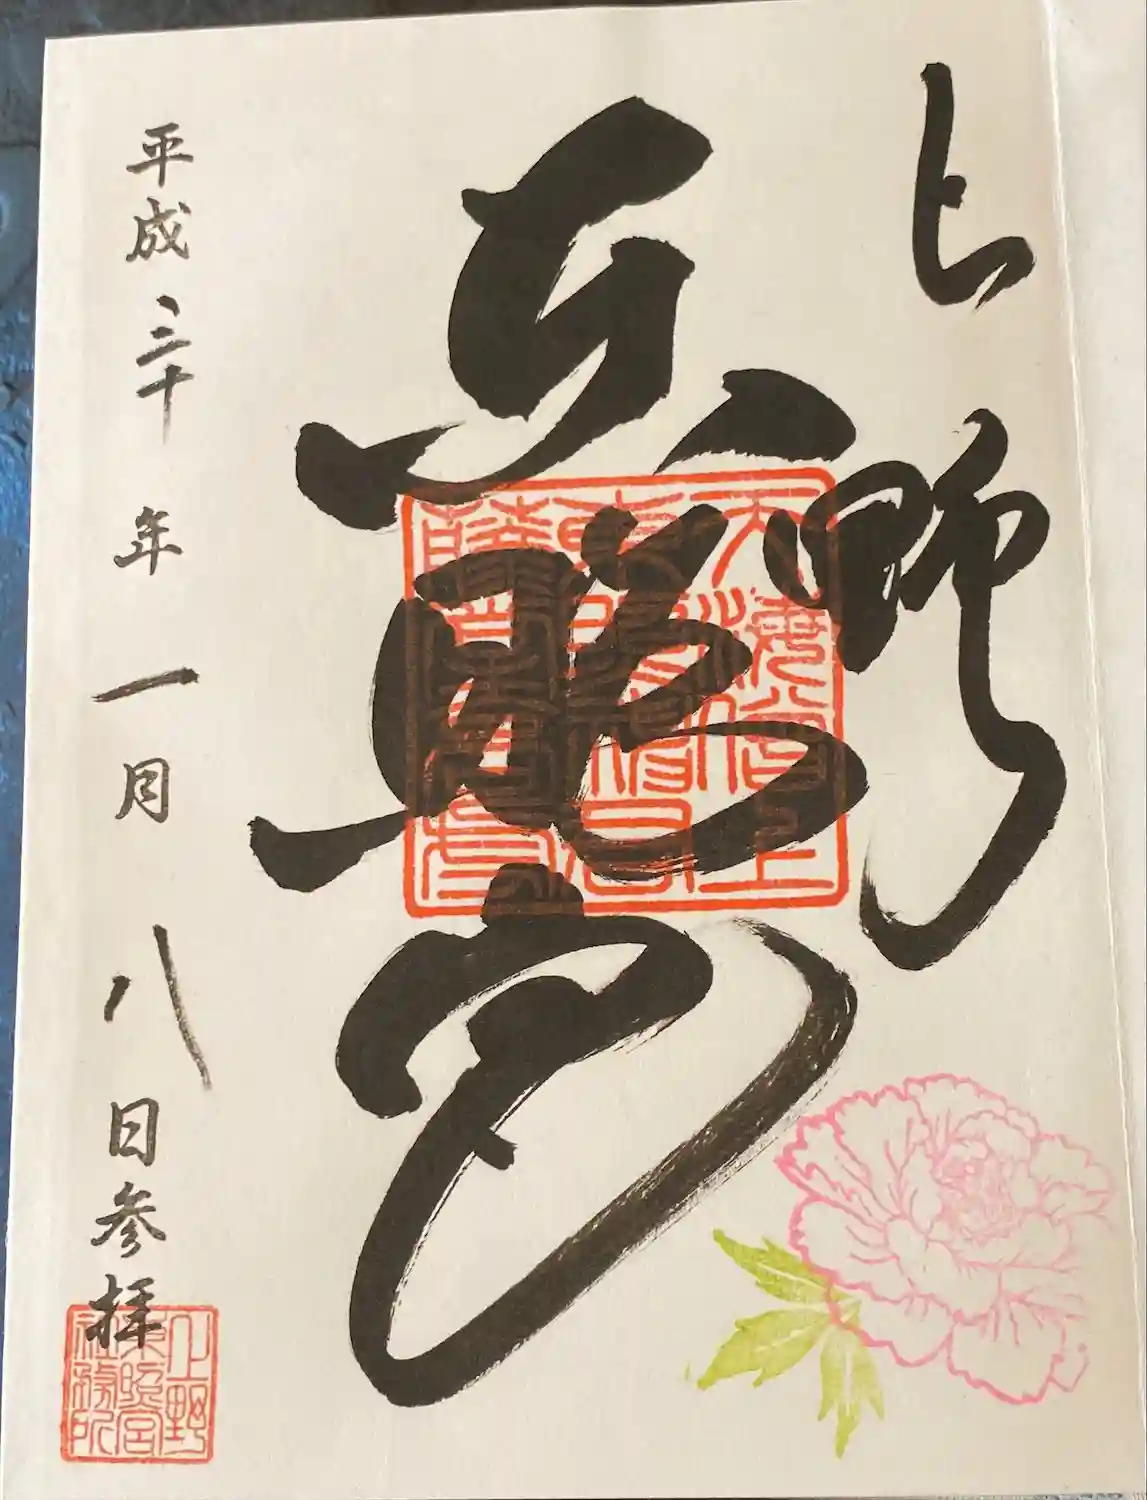 上野
東照宮
平成三十年一月八日参拝
上野
東照宮
社務所